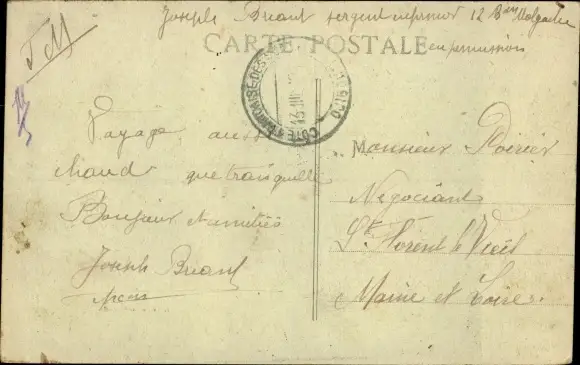 Joseph Briant sergent infirmier 12 B on Malgache
en permission
T M
CARTE POSTALE
CÔTE FRANÇAISE DES
Voyage aussi
chaud que tranquille
Bonjour et amitiés
Joseph Briant
Monsieur Poirier
Négociant
St Florent le Vieil
Maine et Loire